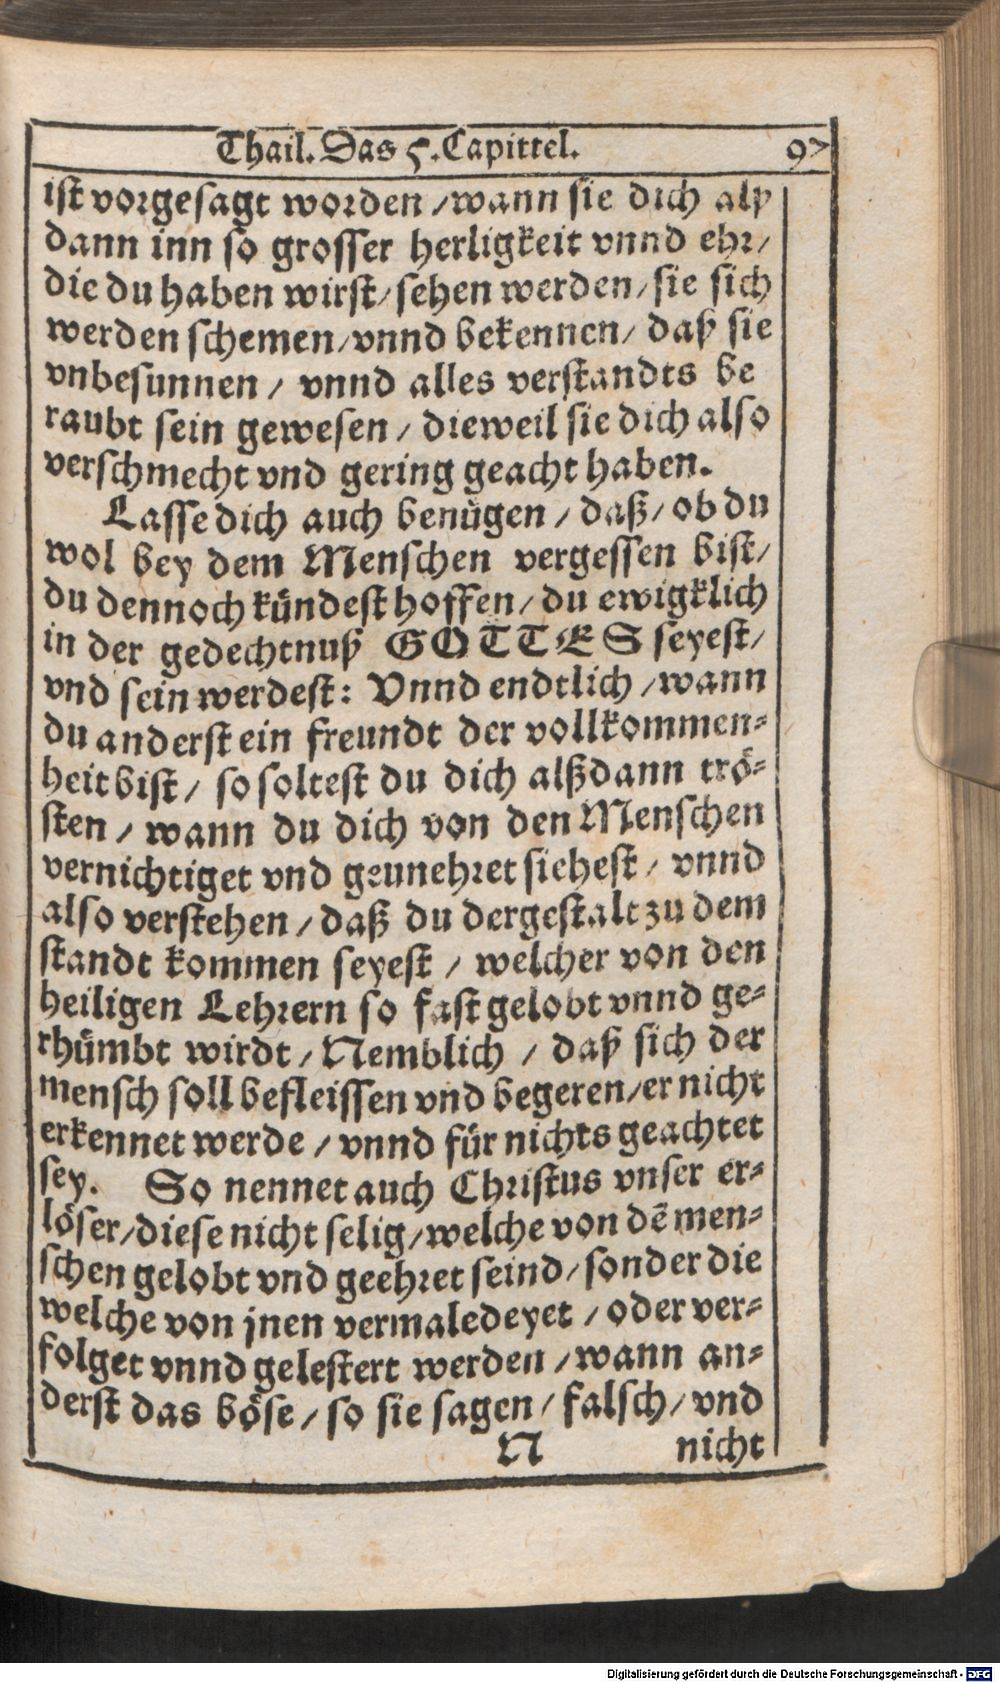 Thail. Das 5. Capittel. 97
ist vorgesagt worden / wann sie dich alß
dann inn so grosser herligkeit vnnd ehr /
die du haben wirst / sehen werden / sie sich
werden schemen / vnnd bekennen / daß sie
vnbesunnen / vnnd alles verstandts be
raubt sein gewesen / dieweil sie dich also
verschmecht vnd gering geacht haben.
Lasse dich auch benügen / daß / ob du
wol bey dem Menschen vergessen bist /
du dennoch kündest hoffen / du ewigklich
in der gedechtnuß GOTTES seyest /
vnd sein werdest: Vnnd endtlich / wann
du anderst ein freundt der vollkommen-
heit bist / so soltest du dich alßdann trö-
sten / wann du dich von den Menschen
vernichtiget vnd geunehret siehest / vnnd
also verstehen / daß du dergestalt zu dem
standt kommen seyest / welcher von den
heiligen Lehrern so fast gelobt vnnd ge-
rhümbt wirdt / Nemblich / daß sich der
mensch soll befleissen vnd begeren / er nicht
erkennet werde / vnnd für nichts geachtet
sey. So nennet auch Christus vnser er-
löser / diese nicht selig / welche von dē men-
schen gelobt vnd geehret seind / sonder die
welche von jnen vermaledeyet / oder ver-
folget vnnd gelestert werden / wann an-
derst das böse / so sie sagen / falsch / vnd
N nicht
Digitalisierung gefördert durch die Deutsche Forschungsgemeinschaft - DFG